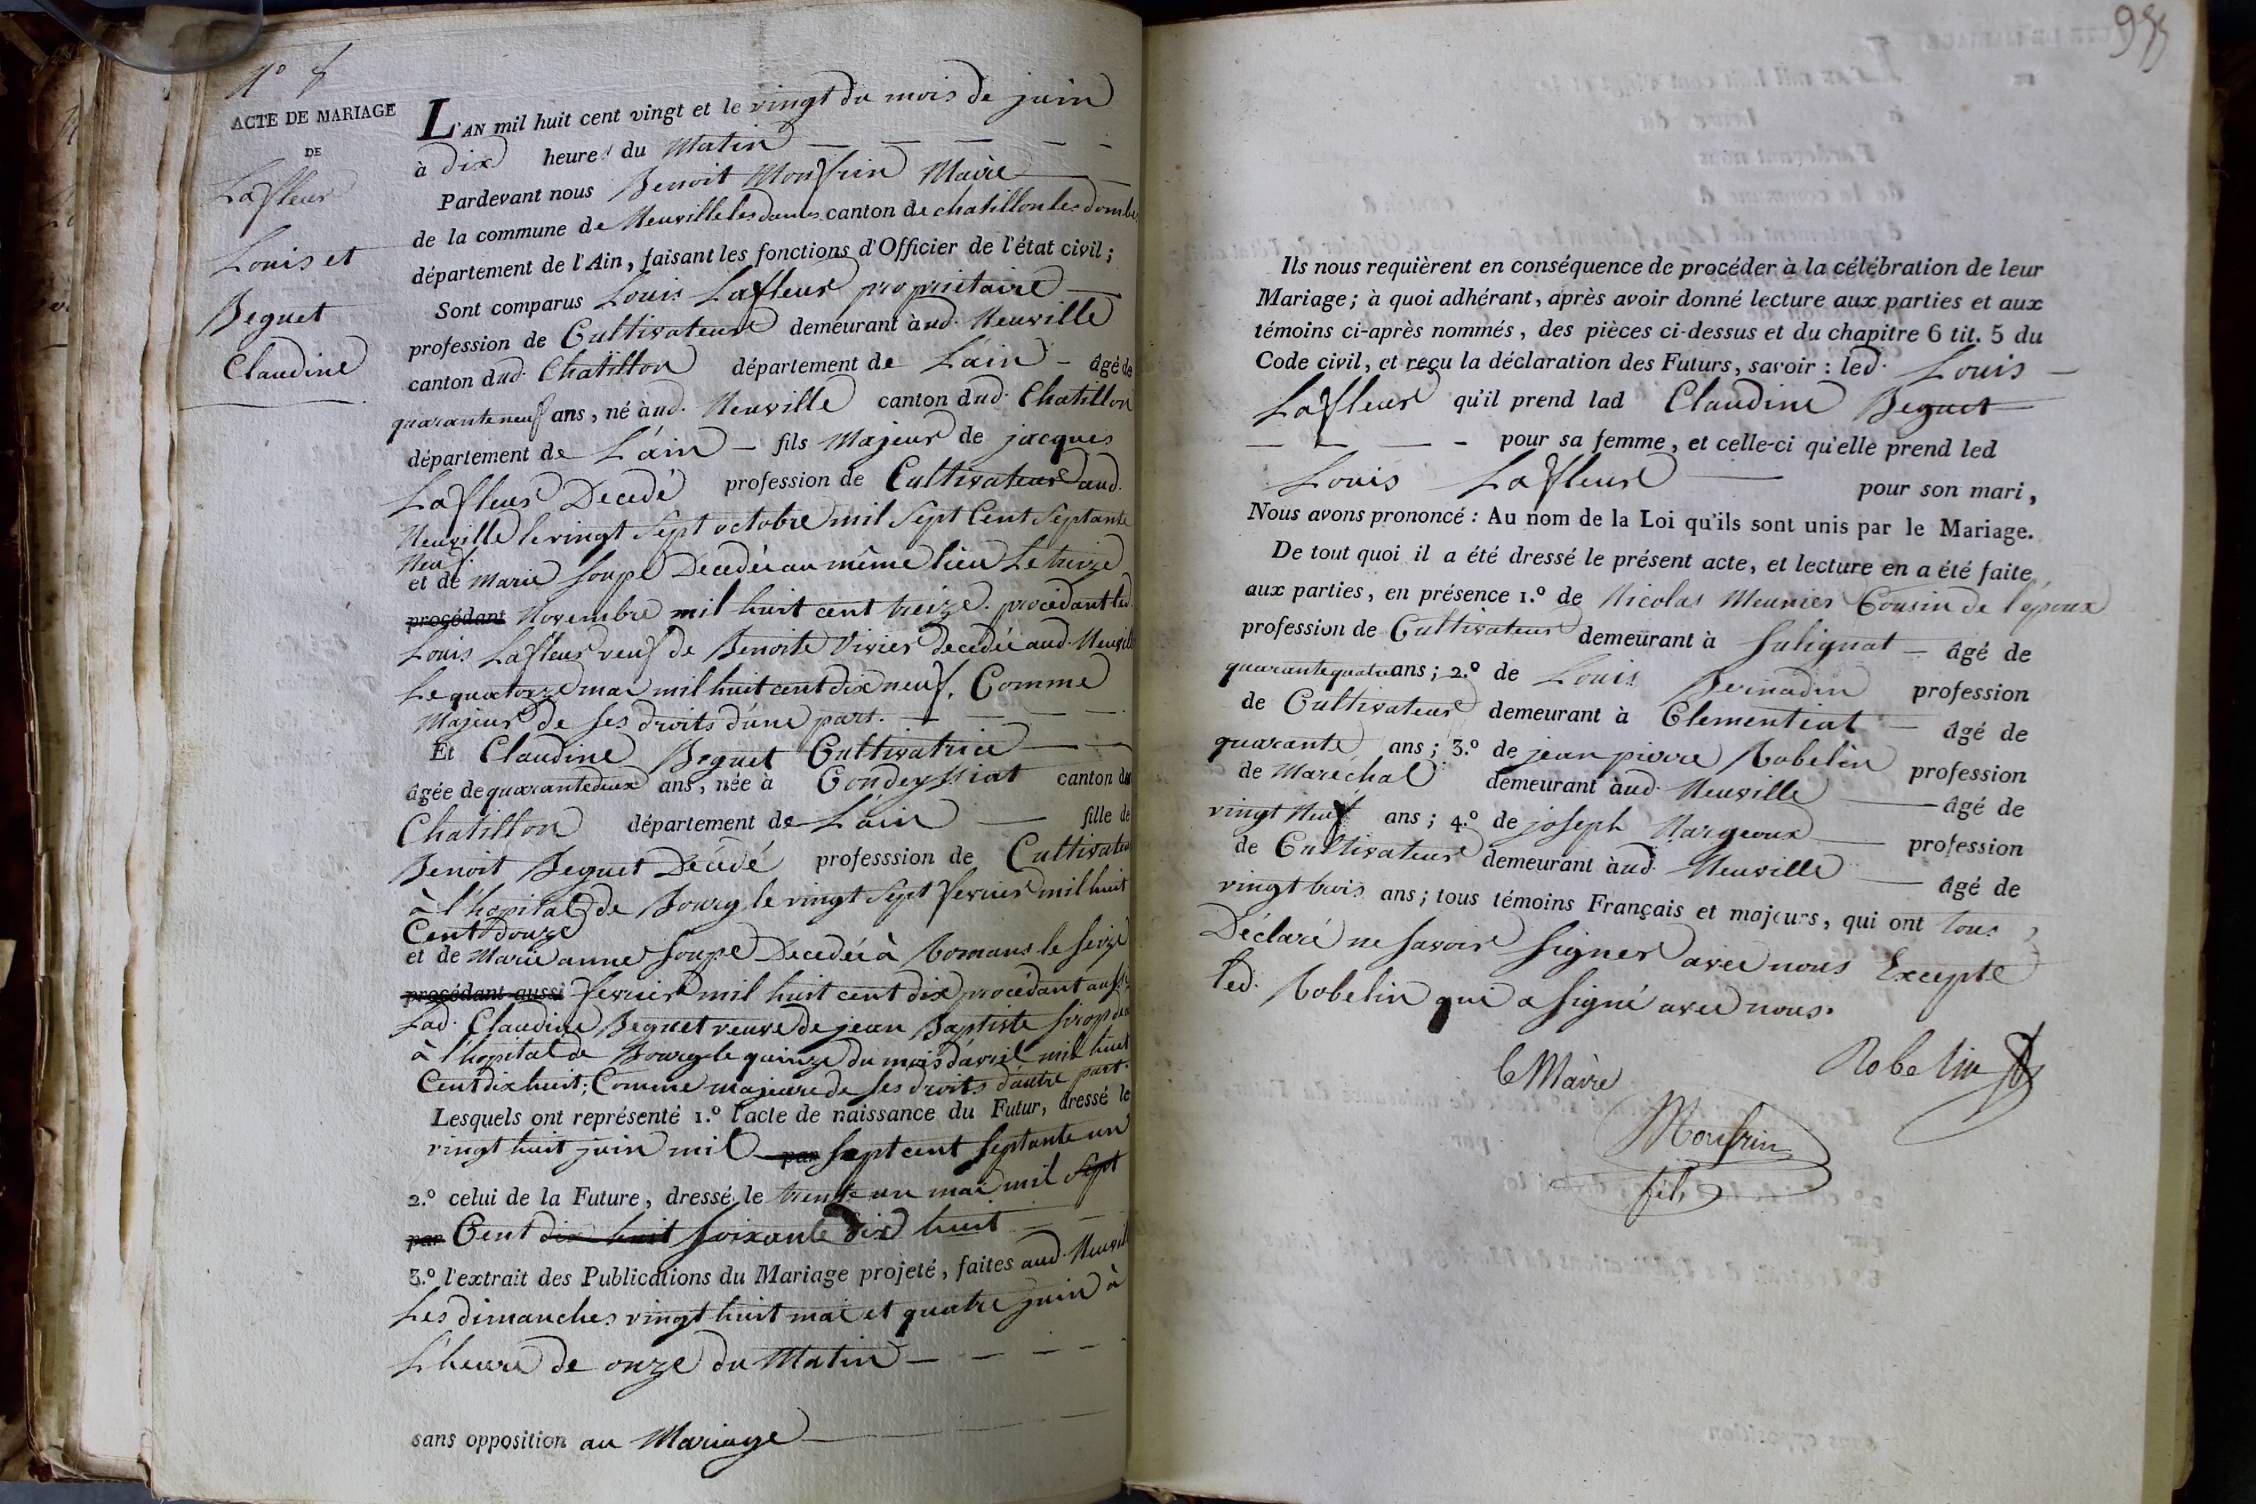 N.º
ACTE DE MARIAGE
DE
Lafleur
Louis et
Beguet
Claudine
L'AN mil huit cent vingt et le vingt du mois de juin
à dix heures du Matin
Pardevant nous Benoit Monfrin Maire
de la commune de Neuville les dames canton de chatillon les dombes
département de l'Ain, faisant les fonctions d'Officier de l'état civil;
Sont comparus Louis Lafleur propriétaire
profession de Cultivateur demeurant àud. Neuville
canton dud. Chatillon département de Lain âgé de
quarante neuf ans, né àud. Neuville canton dud. Chatillon
département de L'ain fils Majeur de jacques
Lafleur Decedé profession de Cultivateur aud.
Neuville le vingt Sept octobre mil Sept Cent Septante
Neuf.
et de Marie Soupe Decedée au même lieu Le treize
procédant Novembre mil huit cent treize. procedant led.
Louis Lafleur veuf de Benoite Vivier decedée aud. Neuville
Le quatorze mai mil huit cent dix neuf, Comme
Majeur de ses droits d'une part.
Et Claudine Beguet Cultivatrice
âgée de quarante deux ans, née à Condeyssiat canton de
Chatillon département de L'ain fille de
Benoit Beguet Décédé professsion de Cultivateur
à l'hopital de Bourg le vingt Sept fevrier mil huit
Cent Douze
et de Marie anne Soupe Decedée à Romans le Seize
procédant aussi fevrier mil huit cent dix procédant aussi
Lad. Claudine Beguet veuve de jean Baptiste
à l'hopital de Bourg le quinze du mois d'avril mil huit
Cent dix huit; Comme majeure de ses droits d'autre part.
Lesquels ont représenté 1.º l'acte de naissance du Futur, dressé le
vingt huit juin mil par Sept cent Septante un
2.º celui de la Future, dressé le trente un mai mil Sept
par Cent dix huit soixante Dix huit
3.º l'extrait des Publications du Mariage projeté, faites aud. Neuville
Les dimanches vingt huit mai et quatre juin à
L'heure de onze du Matin
sans opposition au Mariage
Ils nous requièrent en conséquence de procéder à la célébration de leur
Mariage; à quoi adhérant, après avoir donné lecture aux parties et aux
témoins ci-après nommés, des pièces ci-dessus et du chapitre 6 tit. 5 du
Code civil, et reçu la déclaration des Futurs, savoir: led. Louis
Lafleur qu'il prend lad Claudine Beguet
pour sa femme, et celle-ci qu'elle prend led
Louis Lafleur pour son mari,
Nous avons prononcé: Au nom de la Loi qu'ils sont unis par le Mariage.
De tout quoi il a été dressé le présent acte, et lecture en a été faite
aux parties, en présence 1.º de Nicolas Meunier Cousin de l'epoux
profession de Cultivateur demeurant à Sulignat âgé de
quarante quatre ans; 2.º de Louis Bernadin profession
de Cultivateur demeurant à Clementiat âgé de
quarante ans; 3.º de jean pierre Robelin profession
de Maréchal demeurant àud. Neuville âgé de
vingt Neuf ans; 4.º de joseph Nargeoux profession
de Cultivateur demeurant àud. Neuville âgé de
vingt trois ans; tous témoins Français et majeurs, qui ont tous
Déclaré ne savoir signer avec nous Excepté
led. Robelin qui a signé avec nous.
le Maire
Robelin
Monfrin
fils